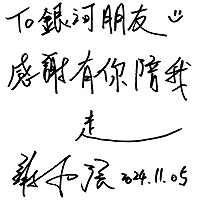 To 銀河朋友
感謝有你陪我
走
2024.11.05